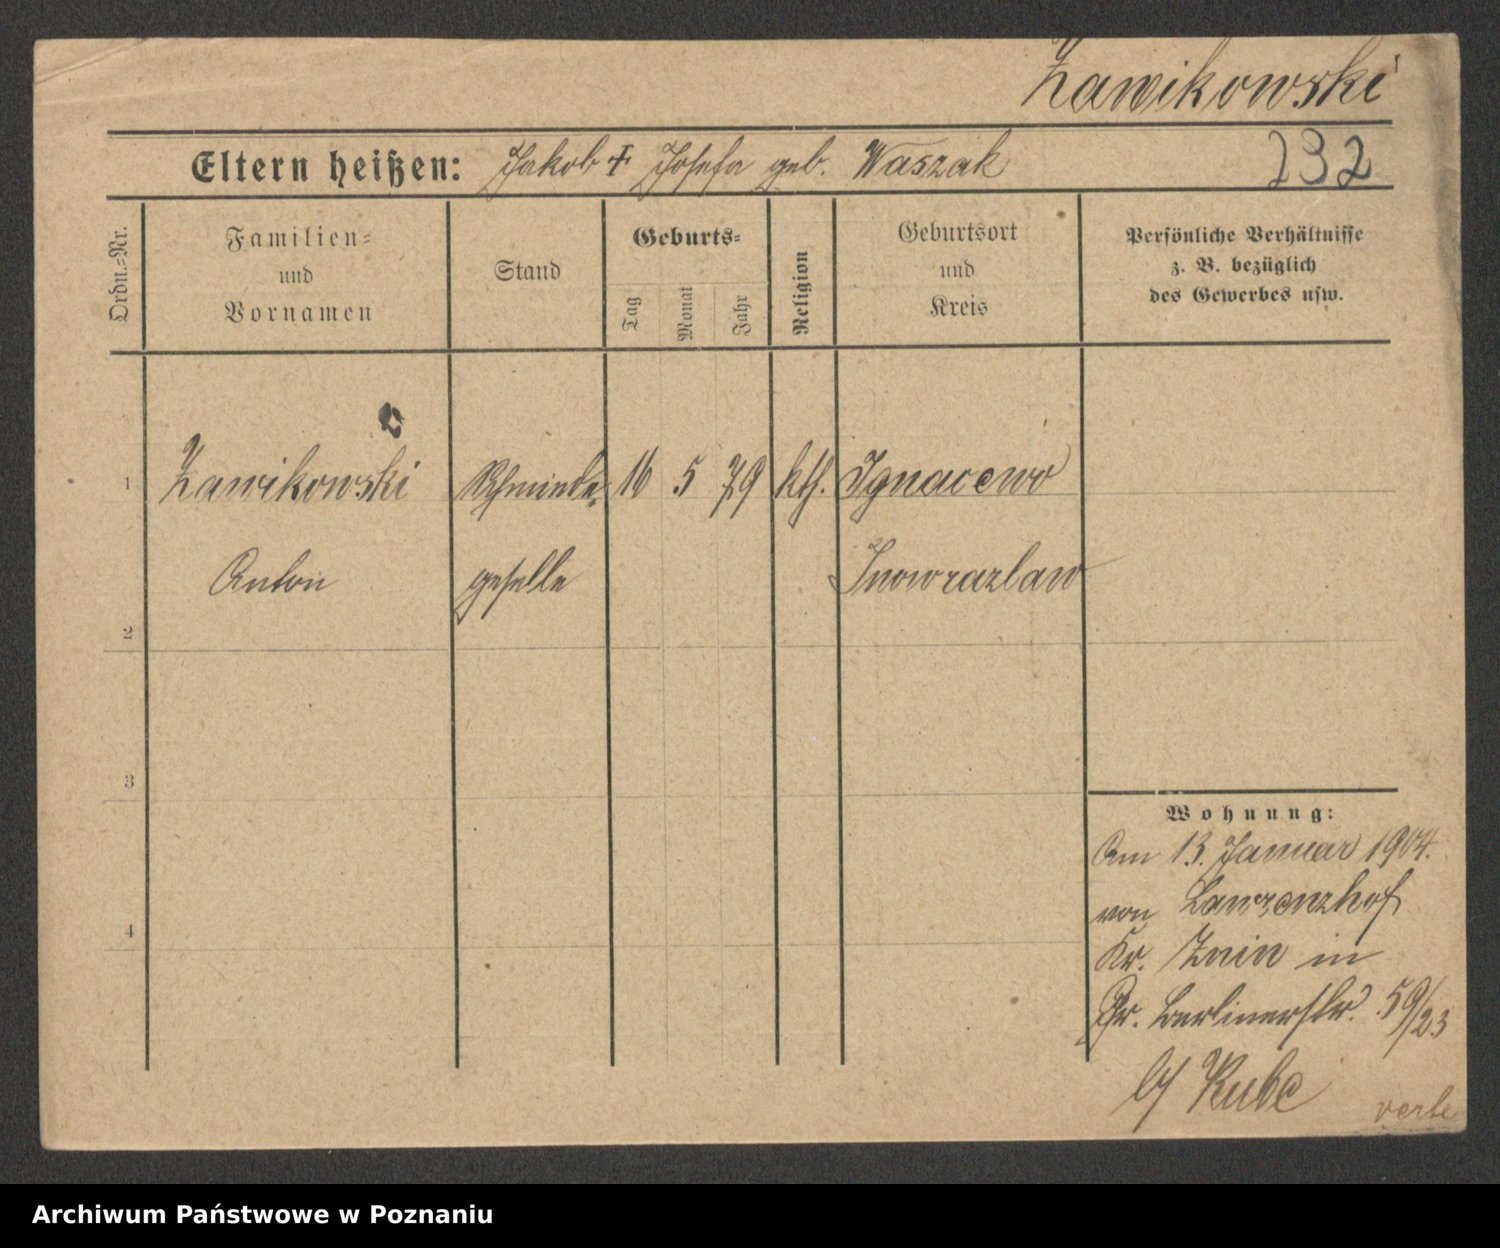 Zawikowski
Eltern heißen: Jakob + Josefa geb. Waszak 232
Ordn.=Nr.
Familien=
und
Vornamen
Stand
Geburts=
Tag
Monat
Jahr
Religion
Geburtsort
und
Kreis
Persönliche Verhältnisse
z. B. bezüglich
des Gewerbes usw.
1 Zawikowski Schmiede= 16 5 79 kth. Ignacewo
Anton geselle Inowrazlaw
2
3
4
Wohnung:
Am 13. Januar 1904.
von Lawrenzhof
Kr. Znin in
Gr. Berlinerstr. 59/23
b/ Kube
verte
Archiwum Państwowe w Poznaniu